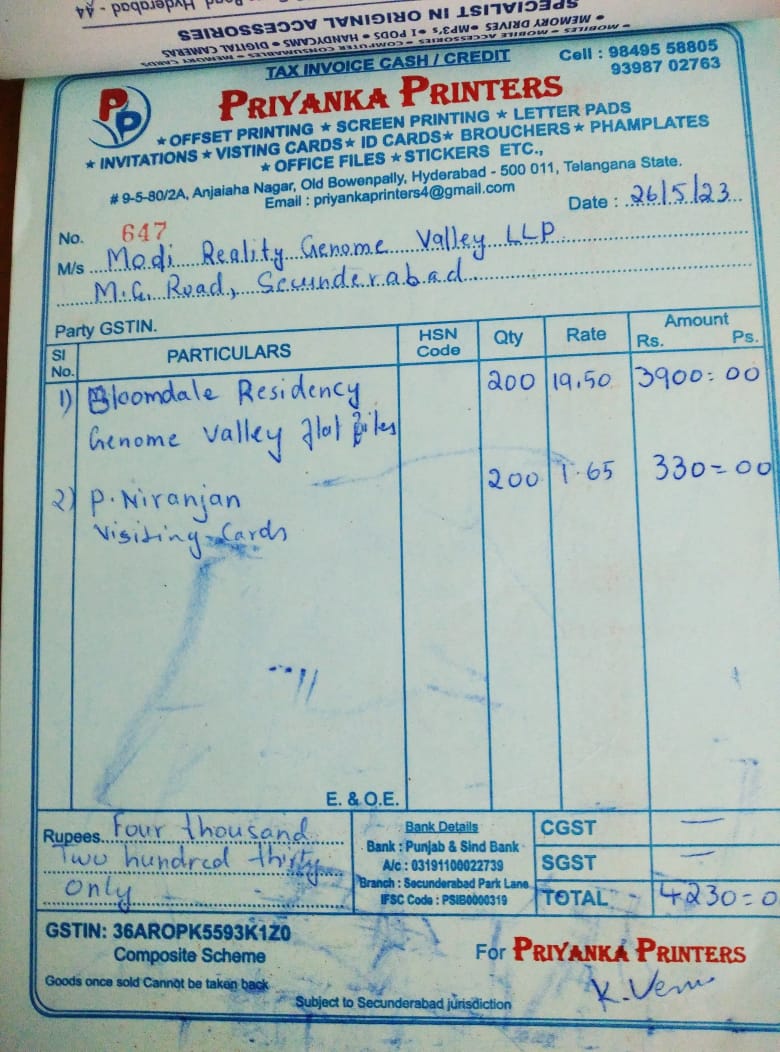 Road, Hyderabad - 44
SPECIALIST IN ORIGINAL ACCESSORIES
• MEMORY DRIVES •MP3's •I PODS • HANDYCAMS • DIGITAL CAMERAS
• MOBILES • MOBILE ACCESSORIES • COMPUTER CONSUMABLES • MEMORY CARDS
TAX INVOICE CASH / CREDIT
Cell : 98495 58805
93987 02763
PP
PRIYANKA PRINTERS
★ OFFSET PRINTING ★ SCREEN PRINTING ★ LETTER PADS
★ INVITATIONS ★ VISTING CARDS ★ ID CARDS ★ BROUCHERS ★ PHAMPLATES
★ OFFICE FILES ★ STICKERS ETC.,
# 9-5-80/2A, Anjaiaha Nagar, Old Bowenpally, Hyderabad - 500 011, Telangana State.
Email : priyankaprinters4@gmail.com
Date : 26/5/23
No. 647
M/s Modi Reality Genome Valley LLP
M.G. Road, Secunderabad
Party GSTIN.
Sl No. PARTICULARS HSN Code Qty Rate Amount Rs. Ps.
1) Bloomdale Residency 200 19.50 3900=00
Genome Valley flat files
2) P. Niranjan 200 1.65 330=00
Visiting Cards
E. & O.E.
Rupees Four thousand
Two hundred thirty
only
Bank Details
Bank : Punjab & Sind Bank
A/c: 03191100022739
Branch : Secunderabad Park Lane
IFSC Code : PSIB0000319
CGST —
SGST —
TOTAL 4230=0
GSTIN: 36AROPK5593K1Z0
Composite Scheme
For PRIYANKA PRINTERS
Goods once sold Cannot be taken back
K. Venu
Subject to Secunderabad jurisdiction